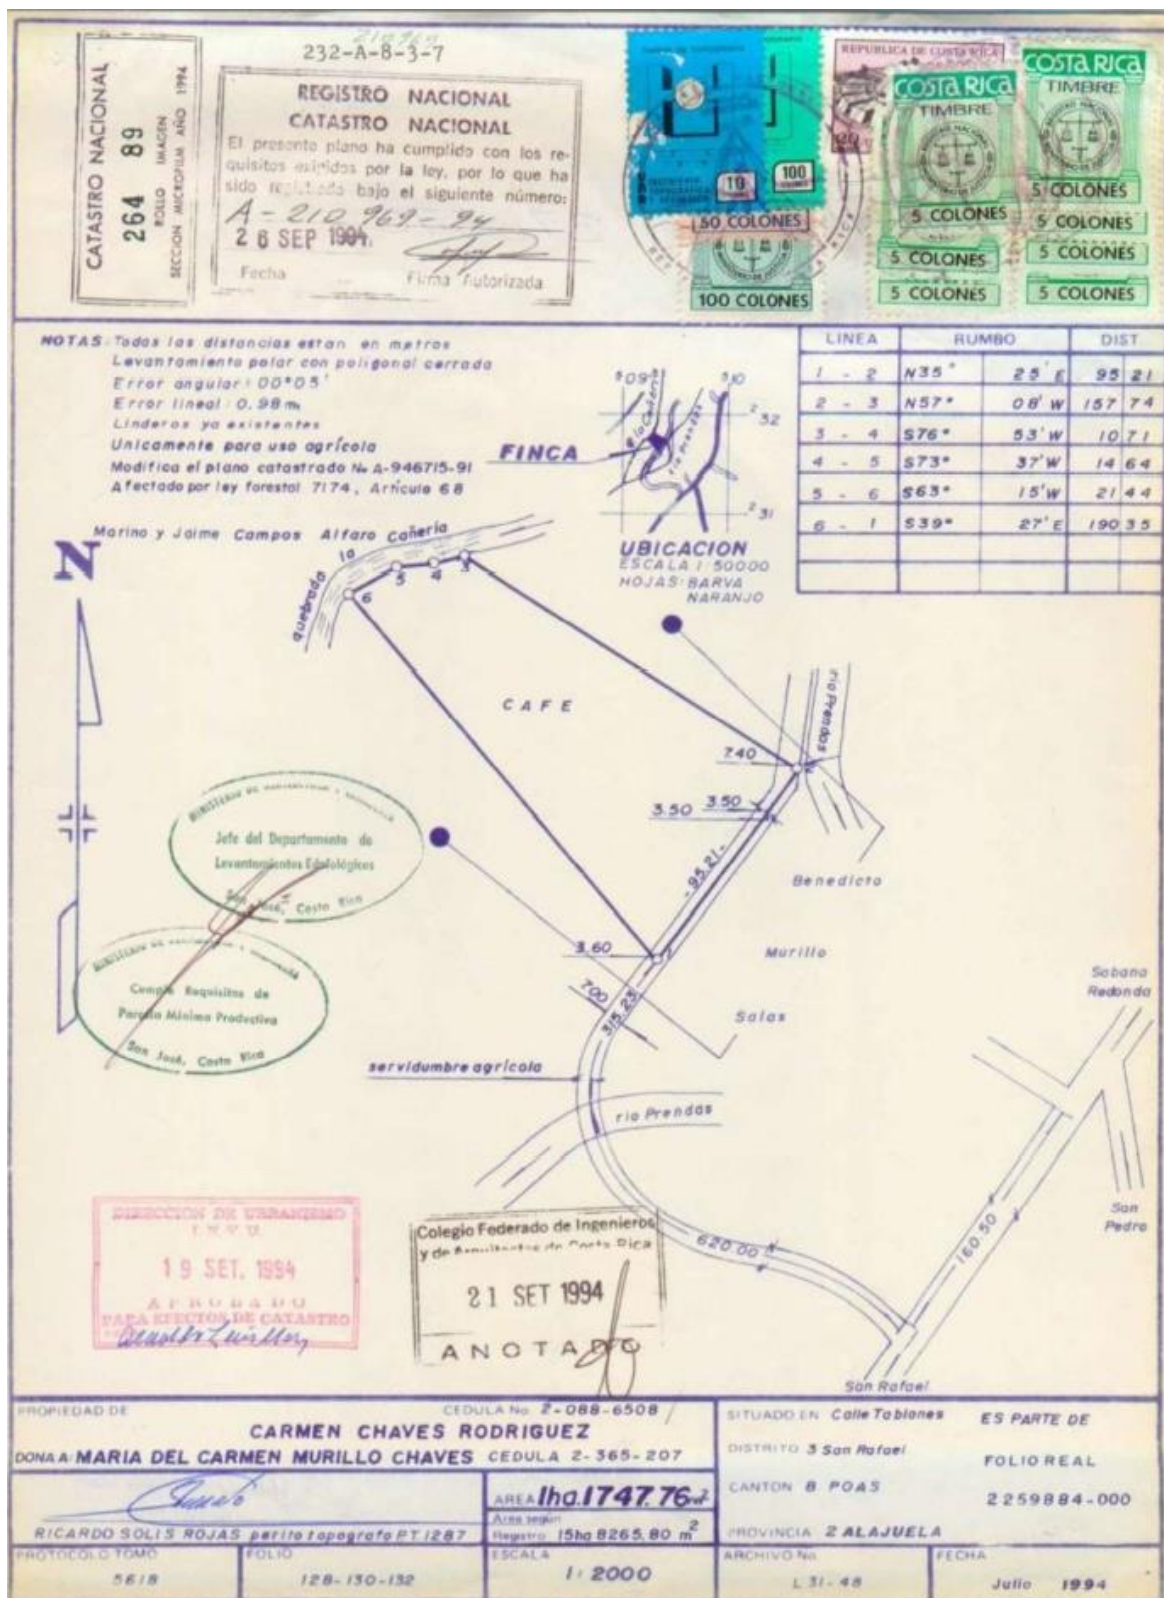 210969
232-A-8-3-7
CATASTRO NACIONAL
264 89
ROLLO IMAGEN
SECCION MICROFILM AÑO 1994
REGISTRO NACIONAL
CATASTRO NACIONAL
El presente plano ha cumplido con los re-
quisitos exigidos por la ley, por lo que ha
sido registrado bajo el siguiente número:
A - 210 969 - 94
26 SEP 1994.
Fecha Firma Autorizada
10
100
50 COLONES
100 COLONES
REPUBLICA DE COSTA RICA
COSTA RICA
TIMBRE
5 COLONES
5 COLONES
5 COLONES
COSTA RICA
TIMBRE
5 COLONES
5 COLONES
5 COLONES
5 COLONES
NOTAS: Todas las distancias estan en metros
Levantamiento polar con poligonal cerrada
Error angular: 00°05'
Error lineal: 0.98m
Linderos ya existentes
Unicamente para uso agrícola
Modifica el plano catastrado No A-946715-91
Afectado por ley forestal 7174, Artículo 68
LINEA RUMBO DIST
1 - 2 N35° 25' E 95 21
2 - 3 N57° 08' W 157 74
3 - 4 S76° 53' W 10 71
4 - 5 S73° 37' W 14 64
5 - 6 S63° 15' W 21 44
6 - 1 S39° 27' E 190 35
509 510
232
231
q la Cañeria
rio Prendas
FINCA
UBICACION
ESCALA 1:50000
HOJAS: BARVA
NARANJO
Marino y Jaime Campos Alfaro
quebrada la Cañeria
N
3
4
5
6
CAFE
rio Prendas
7.40
2
3.50 3.50
- 95.21 -
Benedicto
Murillo
Salas
3.60
1
7.00
315.23
servidumbre agrícola
rio Prendas
620.00
160.50
Sabana
Redonda
San
Pedro
San Rafael
Jefe del Departamento de
Levantamientos Edafológicos
San José, Costa Rica
Cumple Requisitos de
Parcela Mínima Productiva
San José, Costa Rica
DIRECCION DE URBANISMO
I.N.V.U.
19 SET. 1994
APROBADO
PARA EFECTOS DE CATASTRO
Colegio Federado de Ingenieros
y de Arquitectos de Costa Rica
21 SET 1994
ANOTADO
PROPIEDAD DE CEDULA No. 2-088-6508
CARMEN CHAVES RODRIGUEZ
DONA A: MARIA DEL CARMEN MURILLO CHAVES CEDULA 2-365-207
RICARDO SOLIS ROJAS perito topografo PT.1287
AREA 1ha.1747.76m2
Area según
Registro 15ha 8265.80 m2
SITUADO EN Calle Tablones
DISTRITO 3 San Rafael
CANTON 8 POAS
PROVINCIA 2 ALAJUELA
ES PARTE DE
FOLIO REAL
2259884-000
PROTOCOLO TOMO
5618
FOLIO
128-130-132
ESCALA
1:2000
ARCHIVO No.
L 31-48
FECHA
Julio 1994